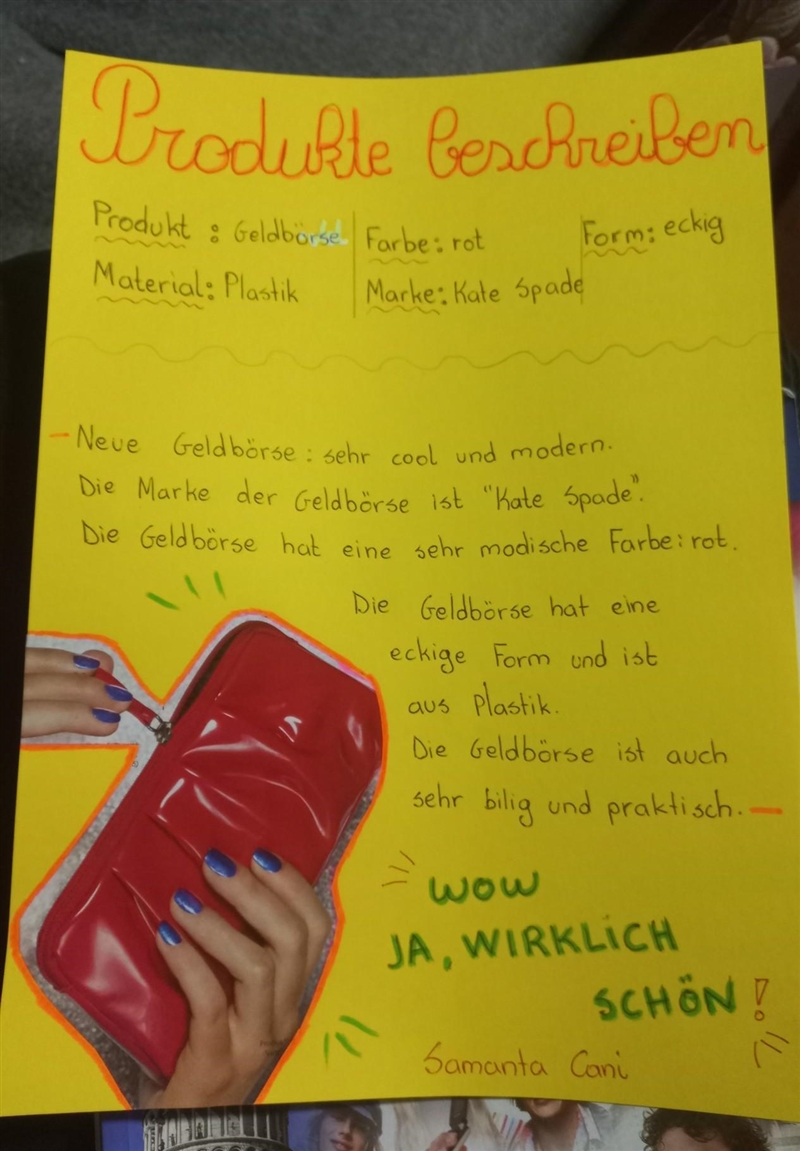 Produkte beschreiben
Produkt : Geldbörse
Farbe: rot
Form: eckig
Material: Plastik
Marke: Kate Spade
Neue Geldbörse : sehr cool und modern.
Die Marke der Geldbörse ist "Kate Spade".
Die Geldbörse hat eine sehr modische Farbe: rot.
Die Geldbörse hat eine
eckige Form und ist
aus Plastik.
Die Geldbörse ist auch
sehr bilig und praktisch.
WOW
JA, WIRKLiCH
SCHÖN!
Samanta Cani